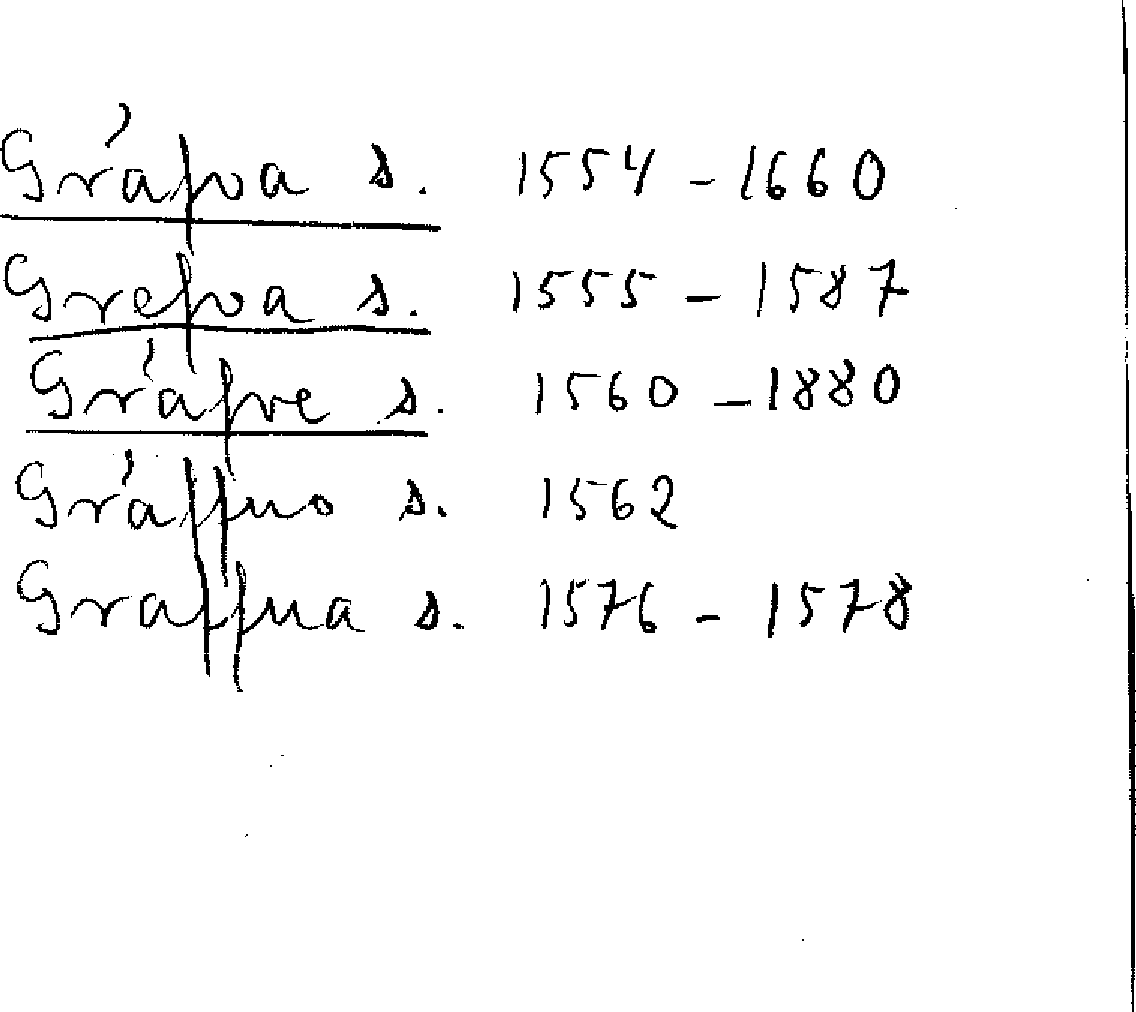 Gráfva s. 1554 - 1660
Grefva s. 1555 - 1587
Gráfve s. 1560 - 1880
Gráffuo s. 1562
Graffua s. 1576 - 1578